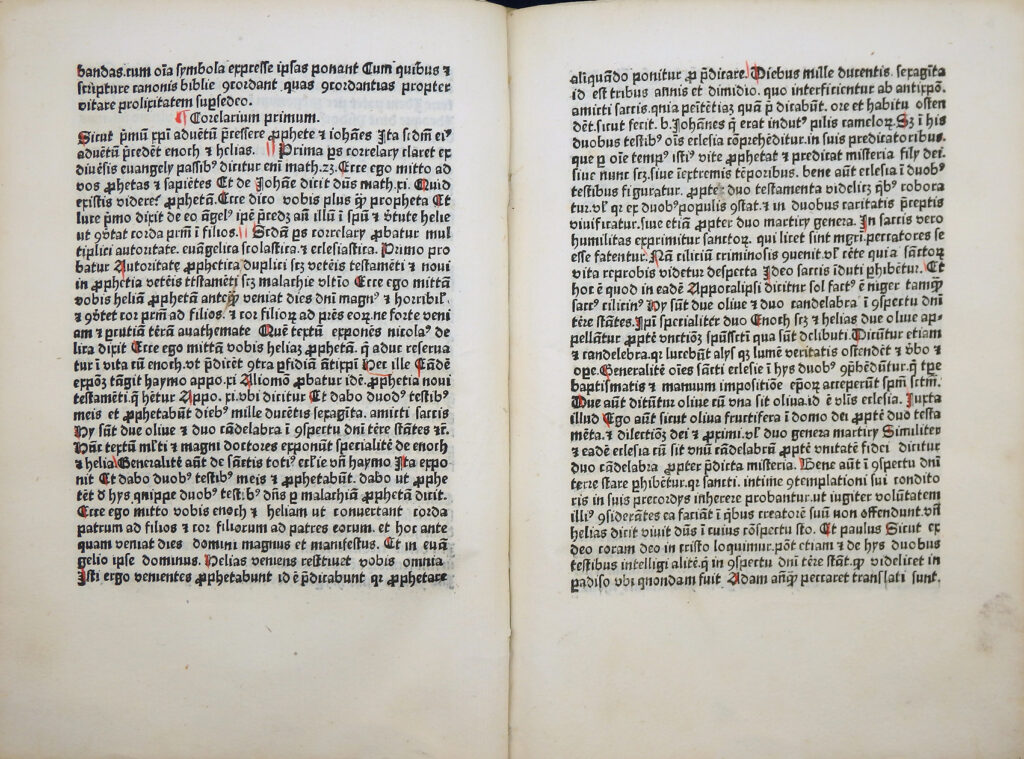 bandas.cum oı̄a ſymbola expreſſe ipſas ponant Cum quibus ⁊
ſcripture canonis biblie ꝯcordant quas ꝯcordantias propter
vitare prolixitatem ſupſedeo.
¶ Corelarium primum.
Sicut p̄mū xp̄i aduētū p̄ceſſere ꝓphete ⁊ iohānes Ita ſcd̄m eiꝰ
aduētū p̄cedēt enoch ⁊ helias. ¶ Prima ps correlary claret ex
diuēſis euangely paſſibꝰ dicitur eni math.23. Ecce ego mitto ad
vos ꝓphetas ⁊ ſapiētes Et de Johāne dicit dūs math.xi. Quid
existis videreʼ ꝓphetā.Ecce dico vobis plus q̄ propheta Et
luce p̄mo dixit de eo āgelꝰ ipē p̄cedꝫ an̄ illū ī ſpū ⁊ v̄tute helie
ut ꝯv̄tat corda pr̄m ī filios. ¶ Scd̄am ps correlary ꝓbatur mul
tiplici autoritate. euāgelica ſcolaſtica. ⁊ eccleſiaſtica. Primo pro
batur Autoritate ꝓphetica duplici ſcꝫ vetēis teſtamēti ⁊ noui
in ꝓphetia vetēis tēſtamēti ſcꝫ malachie vltīo Ecce ego mittā
vobis heliā ꝓphetā anteꝗ̄ veniat dies dn̄i magnꝰ ⁊ horribil̓.
⁊ ꝯv̄tet cor pr̄m ad filios. ⁊ cor filioꝝ ad pr̄es eoꝝ.ne forte veni
am ⁊ ꝑcutiā tērā anathemate Quē textū exponēs nicolaꝰ de
lira dixit Ecce ego mittā vobis heliaꝫ ꝓphetā. q̄ aduc reſerua
tur ī vita cū enoch.vt p̄dicēt ꝯtra ꝑfidiā antixp̄i Hec ille Eādē
expōꝫ tāgit haymo appo.xi Aliomō ꝓbatur idē.ꝓphetia noui
teſtamēti.q̄ hētur Appo.xi.vbi dicitur Et dabo duobꝰ teſtibꝰ
meis et ꝓphetabūt diebꝰ mille ducētis ſexagīta. amicti ſaccis
Hy ſūt due oliue ⁊ duo cādelabra ī ꝯſpectu dn̄i tēre ſtātes ⁊c.
Hāc textū ml̓ti ⁊ magni doctores exponūt ſpecialitē de enoch
⁊ helia Generalitē aūt de ſāctis totiꝰ ecl̓ie vn̄ haymo Ita expo
nit Et dabo duobꝰ teſtibꝰ meis ⁊ ꝓphetabūt. dabo ut ꝓphe
tēt ꝺ hys quippe duobꝰ teſtibꝰ dn̄s ꝑ malachiā ꝓphetā dicit.
Ecce ego mitto vobis enoch ⁊ heliam ut conuertant corda
patrum ad filios ⁊ cor filiorum ad patres eorum. et hoc ante
quam veniat dies domini magnus et manifeſtus. Et in euā
gelio ipſe dominus. Helias veniens reſtituet vobis omnia
Iſti ergo venientes ꝓphetabunt id ē p̄dicabunt qꝛ ꝓphetare
aliquādo ponitur ꝓ p̄dicare. Diebus mille ducentis ſexagīta
id eſt tribus annis et dimidio. quo interficientur ab antixp̄o.
amicti ſaccis.quia penitētiaꝫ quā p̄dicabūt. ore et habitu oſten
dēt.ſicut fecit.b.Johānes q̄ erat indutꝰ pilis cameloꝝ.Sꝫ ī his
duobus teſtibꝰ oīs ecleſia cōprehēditur.in ſuis predicatoribus.
que ꝑ oīe tempꝰ iſtiꝰ vite ꝓphetat ⁊ predicat miſteria fily dei.
ſiue nunc ſcꝫ.ſiue īextremis tēporibus. bene aūt eclesia ī duobꝰ
teſtibus figuratur. ꝓpteꝛ duo teſtamenta videlicꝫ qͥbꝰ robora
tur.vl̓ qꝛ ex duobꝰpopulis ꝯſtat.⁊ in duobus caritatis p̄ceptis
viuificatur.ſiue etiā ꝓpter duo martiry genera. In ſaccis vero
humilitas exprimitur ſanctoꝝ. qui licet ſint nigri.peccatores ſe
eſſe fatentur. Nā ciliciū criminoſis ꝯuenit.vl̓ cēte qui a ſāctoꝝ
vita reprobis videtur deſpecta Ideo ſaccis īduti ꝑhibētur. Et
hoc ē quod in eadē Appocalipſi dicitur ſol factꝰ ē niger tamq̄
ſaccꝰ cilicinꝰ Hy ſūt due oliue ⁊ duo candelabra ī ꝯſpectu dn̄i
tēre ſtātes.Ipī ſpecialiter duo Enoch ſcꝫ ⁊ helias due oliue ap⸗
pellātur ꝓptē vnctiōꝫ ſpūſſcti qua ſūt delibuti.Dicūtur etiam
⁊ candelebra.qꝛ lucebūt alys qꝫ lumē veritatis oſtendēt ⁊ v̄bo ⁊
oꝑe.Generalitē oīes ſācti ecleſie ī hys duobꝰ ꝯp̄bēdūtur.q̄ tꝑe
baptiſmatis ⁊ manuum impoſitiōe epōꝝ acceperūt ſpm̄ ſctm̄.
Due aūt dicūtur oliue cū vna ſit oliua.id ē vl̓is ecleſia. Juxta
illud Ego aūt ſicut oliua fructifera ī domo dei ꝓptē duo teſta
mēta. ⁊ dilectiōꝫ dei ⁊ ꝓximi.vl̓ duo genera martiry Similiter
⁊ eadē ecleſia cū ſit vnū cādelabrū ꝓptē vnitatē fidei dicitur
duo cādelabra ꝓpter p̄dicta miſteria. Bene aūt ī ꝯſpectu dn̄i
terre ſtare ꝑhibētur.qꝛ ſancti. intime ꝯtemplationi ſui condito
ris in ſuis precordys inherere probantur.ut iugiter volūtatem
illiꝰ ꝯſiderātes ea faciāt ī qͥbus creatorē ſuū non offendunt.vn̄
helias dicit viuit dūs ī cuius cōſpectu ſto. Et paulus Sicut ex
deo coram deo in criſto loquimur.pōt etiam ⁊ de hys duobus
teſtibus intelligi alitē.q̄ in ꝯſpectu dn̄i tēre ſtāt.qꝫ videlicet in
padiſo vbi quondam fuit Adam an̄qꝫ peccaret tranſlati ſunt.